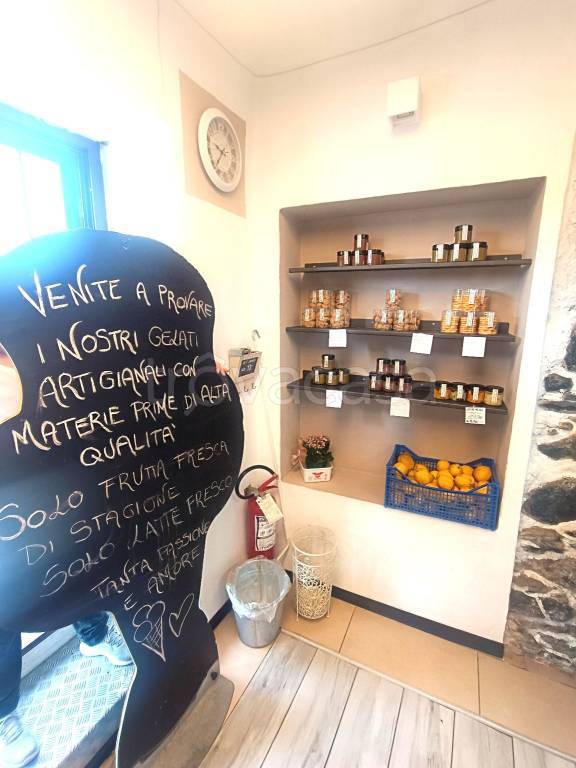 VENITE A PROVARE
I NOSTRI GELATI
ARTIGIANALI CON
MATERIE PRIME DI ALTA
QUALITÀ
SOLO FRUTTA FRESCA
DI STAGIONE
SOLO LATTE FRESCO
TANTA PASSIONE
E AMORE
trovacasa